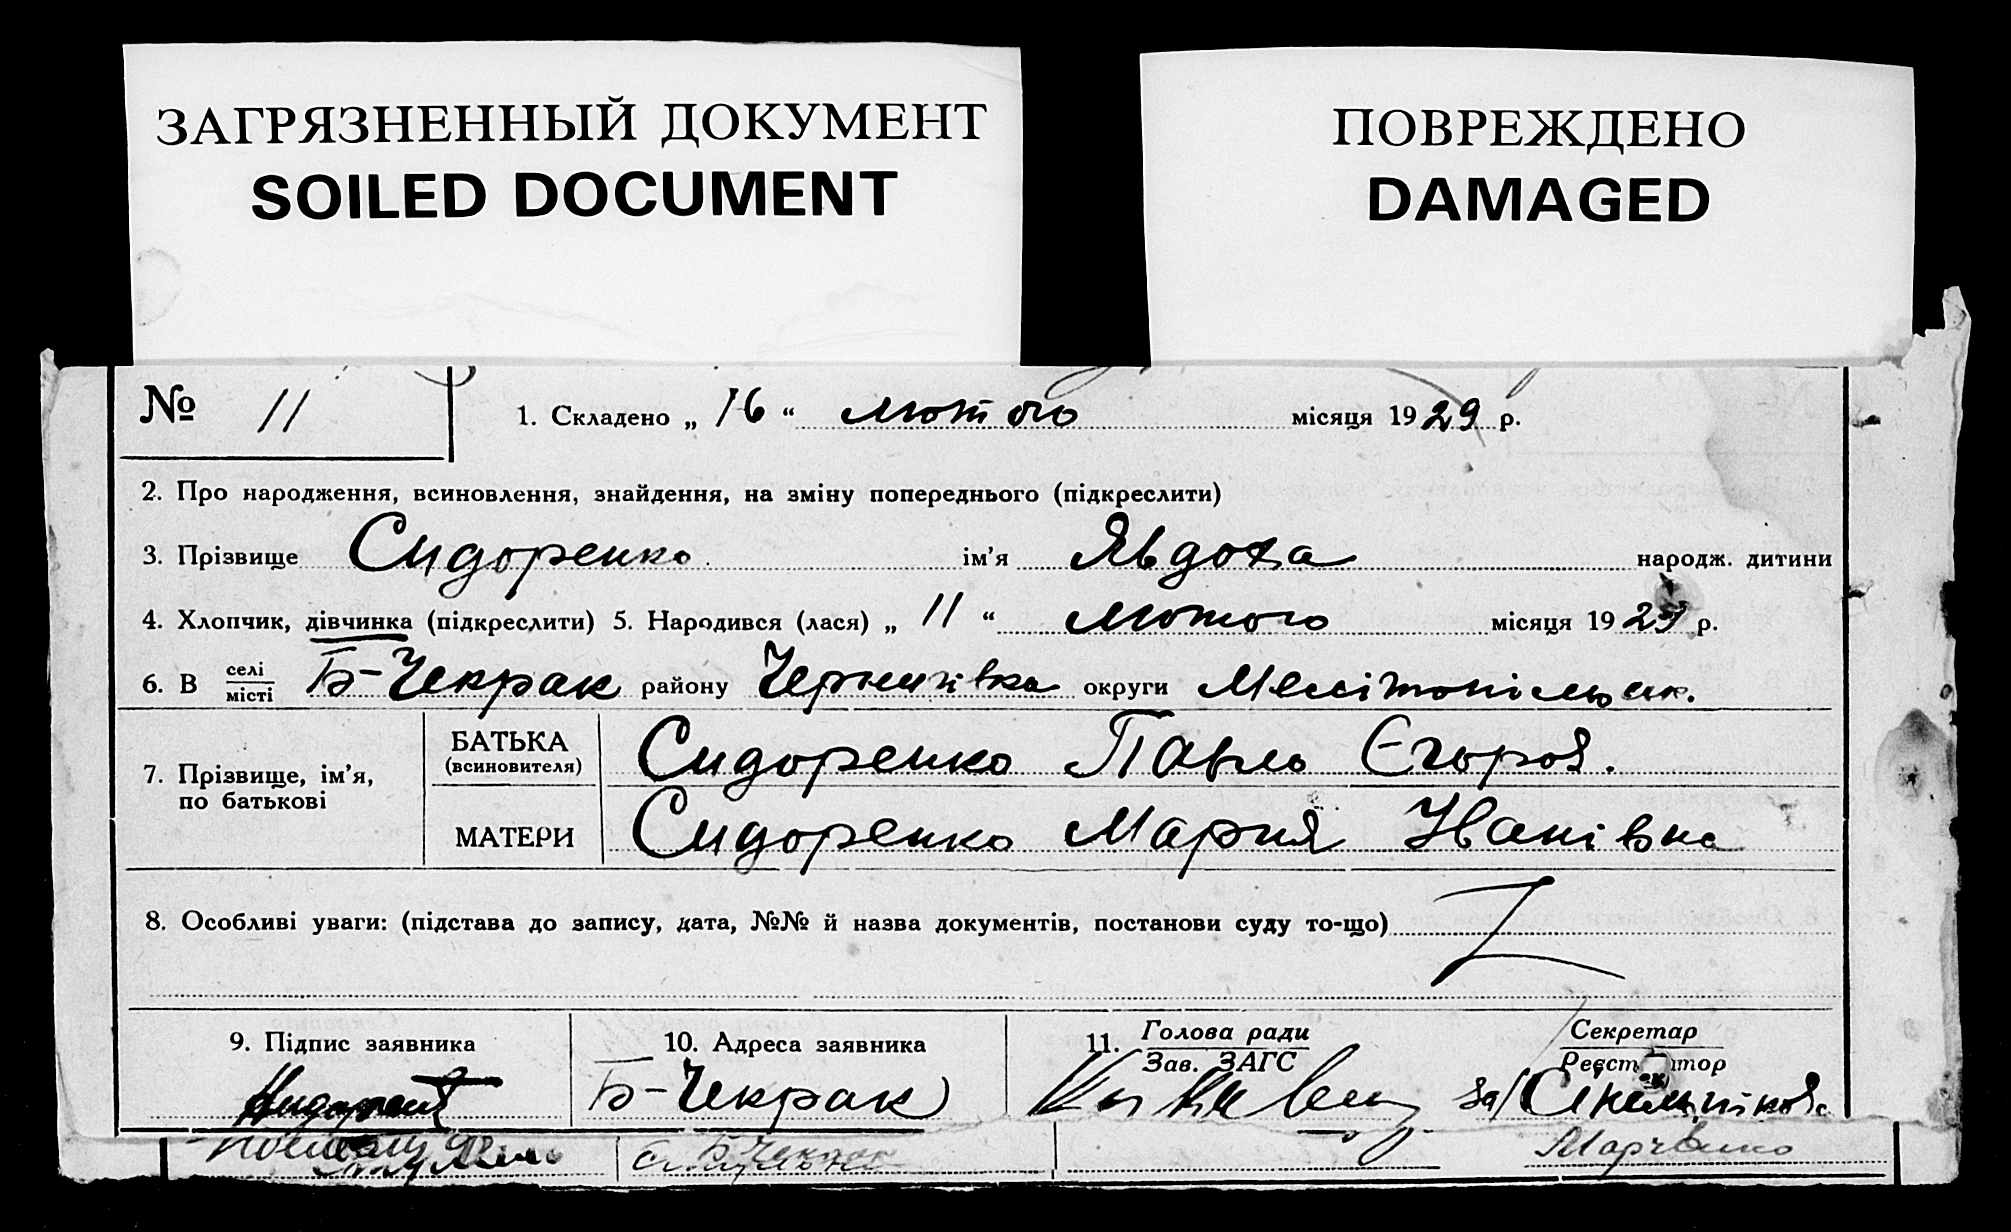 ЗАГРЯЗНЕННЫЙ ДОКУМЕНТ
SOILED DOCUMENT
ПОВРЕЖДЕНО
DAMAGED
№ 11
1. Складено „ 16 “ лютого місяця 1929 р.
2. Про народження, всиновлення, знайдення, на зміну попереднього (підкреслити)
3. Прізвище Сидоренко ім'я Явдоха народж. дитини
4. Хлопчик, дівчинка (підкреслити) 5. Народився (лася) „ 11 “ лютого місяця 1929 р.
6. В селі Б-Чекрак району Чернигівка округи Мелітопільськ.
місті
БАТЬКА
(всиновителя) Сидоренко Павло Єгоров.
7. Прізвище, ім'я,
по батькові
МАТЕРИ Сидоренко Мария Іванівна
8. Особливі уваги: (підстава до запису, дата, №№ й назва документів, постанови суду то-що)
9. Підпис заявника 10. Адреса заявника 11. Голова ради Секретар
Зав. ЗАГС
Б-Чекрак за
Марченко